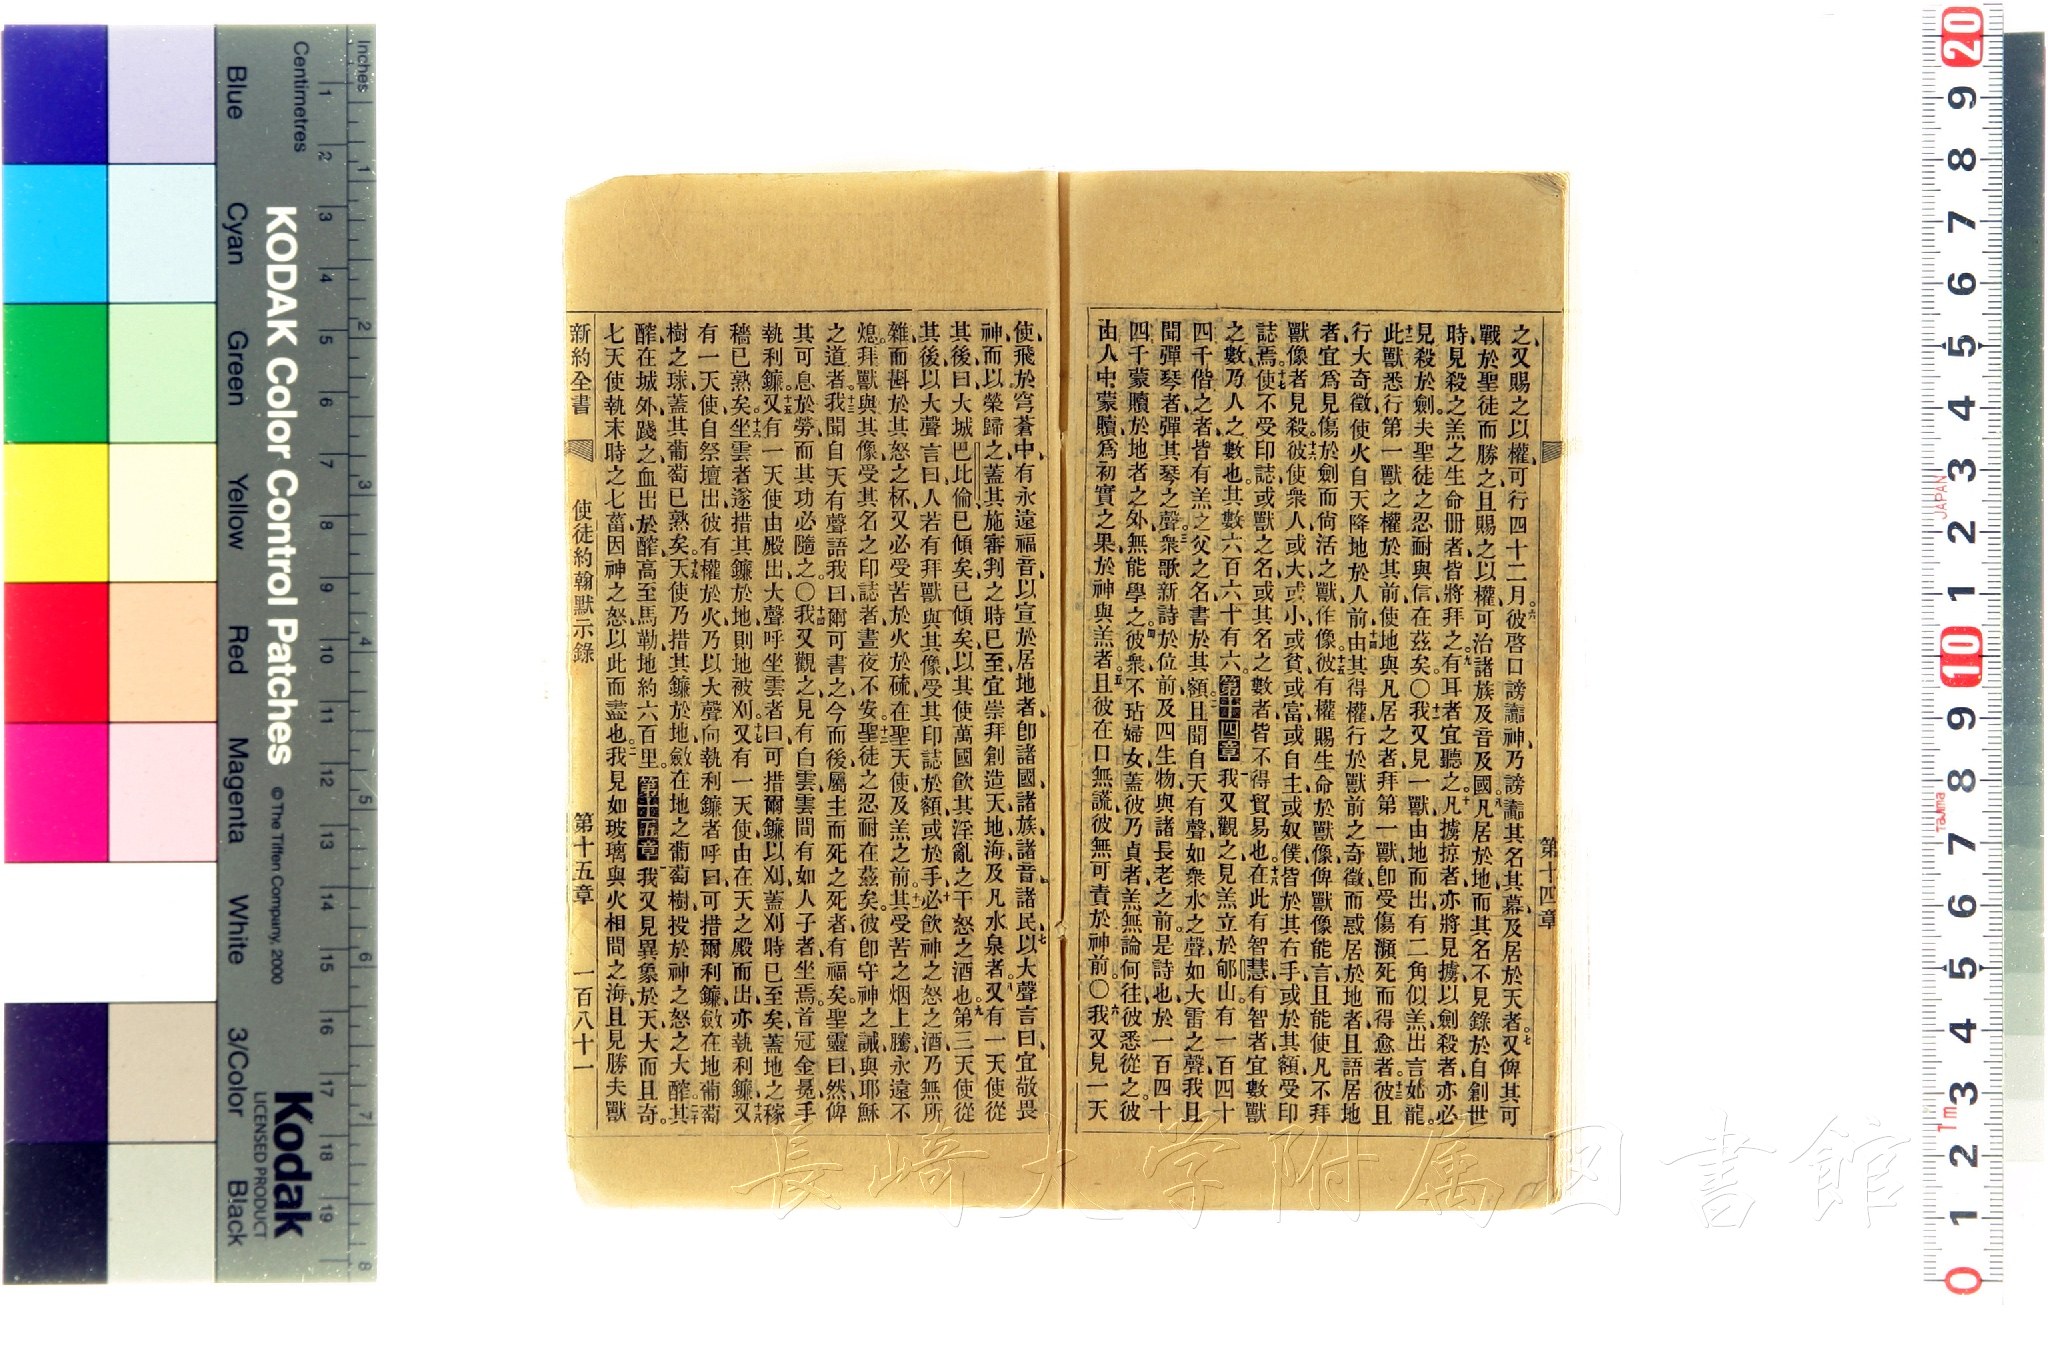 之、又賜之以權、可行四十二月、六彼啓口謗讟神、乃謗讟其名、其幕、及居於天者、七又俾其可
戰於聖徒而勝之、且賜之以權、可治諸族及音及國、八凡居於地而其名不見錄於自創世
時見殺之羔之生命册者、皆將拜之、九有耳者宜聽之、十凡擄掠者、亦將見擄、以劍殺者、亦必
見殺於劍、夫聖徒之忍耐與信在茲矣。〇十一我又見一獸由地而出、有二角似羔、出言如龍。
十二此獸悉行第一獸之權於其前、使地與凡居之者、拜第一獸、卽受傷瀕死而得愈者、十三彼且
行大奇徵、使火自天降地於人前、十四由其得權行於獸前之奇徵、而惑居於地者、且語居地
者、宜爲見傷於劍而尙活之獸作像、十五彼有權賜生命於獸像、俾獸像能言、且能使凡不拜
獸像者見殺、十六彼使衆人、或大或小、或貧或富、或自主或奴僕、皆於其右手、或於其額受印
誌焉、十七使不受印誌、或獸之名、或其名之數者、皆不得貿易也、十八在此有智慧、有智者宜數獸
之數、乃人之數也、其數六百六十有六。第十四章 一我又觀之、見羔立於郇山、有一百四十
四千偕之者、皆有羔之父之名書於其額、二且聞自天有聲、如衆水之聲、如大雷之聲、我且
聞彈琴者彈其琴之聲、三衆歌新詩於位前、及四生物與諸長老之前、是詩也、於一百四十
四千蒙贖於地者之外、無能學之、四彼衆不玷婦女、蓋彼乃貞者、羔無論何往、彼悉從之、彼
由人中蒙贖、爲初實之果於神與羔者、五且彼在口無謊、彼無可責於神前。〇六我又見一天
第十四章
使飛於穹蒼中、有永遠福音、以宣於居地者、卽諸國諸族諸音諸民、七以大聲言曰、宜敬畏
神、而以榮歸之、蓋其施審判之時已至、宜崇拜創造天地海及凡水泉者、八又有一天使從
其後曰、大城巴比倫已傾矣、已傾矣、以其使萬國飲其淫亂之干怒之酒也、九第三天使從
其後、以大聲言曰、人若有拜獸與其像、受其印誌於額或於手、十必飲神之怒之酒、乃無所
雜而斟於其怒之杯、又必受苦於火於硫、在聖天使及羔之前、十一其受苦之烟上騰、永遠不
熄、拜獸與其像、受其名之印誌者、晝夜不安、十二聖徒之忍耐在茲矣、彼卽守神之誡與耶穌
之道者、十三我聞自天有聲語我曰、爾可書之、今而後屬主而死之死者有福矣、聖靈曰、然、俾
其可息於勞、而其功必隨之。〇十四我又觀之、見有白雲、雲間有如人子者坐焉、首冠金冕、手
執利鐮、十五又有一天使由殿出、大聲呼坐雲者曰、可措爾鐮以刈、蓋刈時已至矣、蓋地之稼
穡已熟矣、十六坐雲者遂措其鐮於地、則地被刈、十七又有一天使由在天之殿而出、亦執利鐮、十八又
有一天使自祭壇出、彼有權於火、乃以大聲向執利鐮者呼曰、可措爾利鐮、斂在地葡萄
樹之球、蓋其葡萄已熟矣、十九天使乃措其鐮於地、斂在地之葡萄樹、投於神之怒之大醡、二十其
醡在城外踐之、血出於醡、高至馬勒、地約六百里。第十五章 一我又見異象於天、大而且奇。
七天使執末時之七菑、因神之怒以此而盡也、二我見如玻璃與火相間之海、且見勝夫獸
新約全書 使徒約翰默示錄 第十五章 一百八十一
Inches
Centimetres
Blue Cyan Green Yellow Red Magenta White 3/Color Black
KODAK Color Control Patches
© The Tiffen Company, 2000
Kodak
LICENSED PRODUCT
1 2 3 4 5 6 7 8 9 10 11 12 13 14 15 16 17 18 19
1 2 3 4 5 6 7 8
20 9 8 7 6 5 4 3 2 1 10 9 8 7 6 5 4 3 2 1 0
JAPAN
Tajima
Tm
長崎大学附属図書館